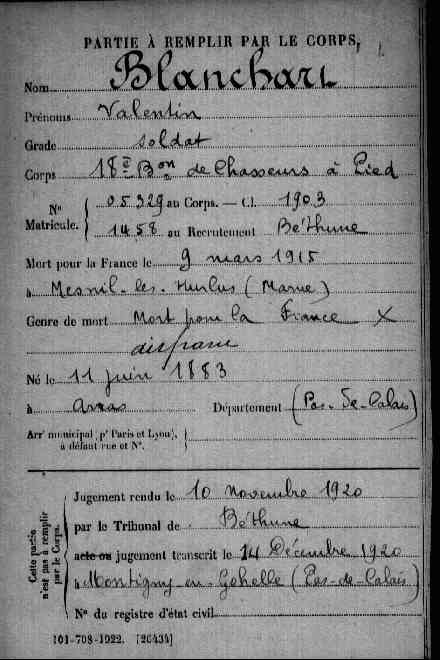 PARTIE À REMPLIR PAR LE CORPS.
Nom Blanchart
Prénoms Valentin
Grade soldat
Corps 18e Bon de Chasseurs à Pied
No Matricule. { 05329 au Corps. — Cl. 1903
1458 au Recrutement Béthune
Mort pour la France le 9 mars 1915
à Mesnil-les-Hurlus (Marne)
Genre de mort Mort pour la France X
disparu
Né le 11 juin 1883
à Arras Département (Pas-de-Calais)
Arrt municipal (pr Paris et Lyon), à défaut rue et No. {
Cette partie n'est pas à remplir par le Corps.
Jugement rendu le 10 novembre 1920
par le Tribunal de Béthune
acte ou jugement transcrit le 14 Décembre 1920
à Montigny-en-Gohelle (Pas-de-Calais)
No du registre d'état civil
101-708-1922. [26434]